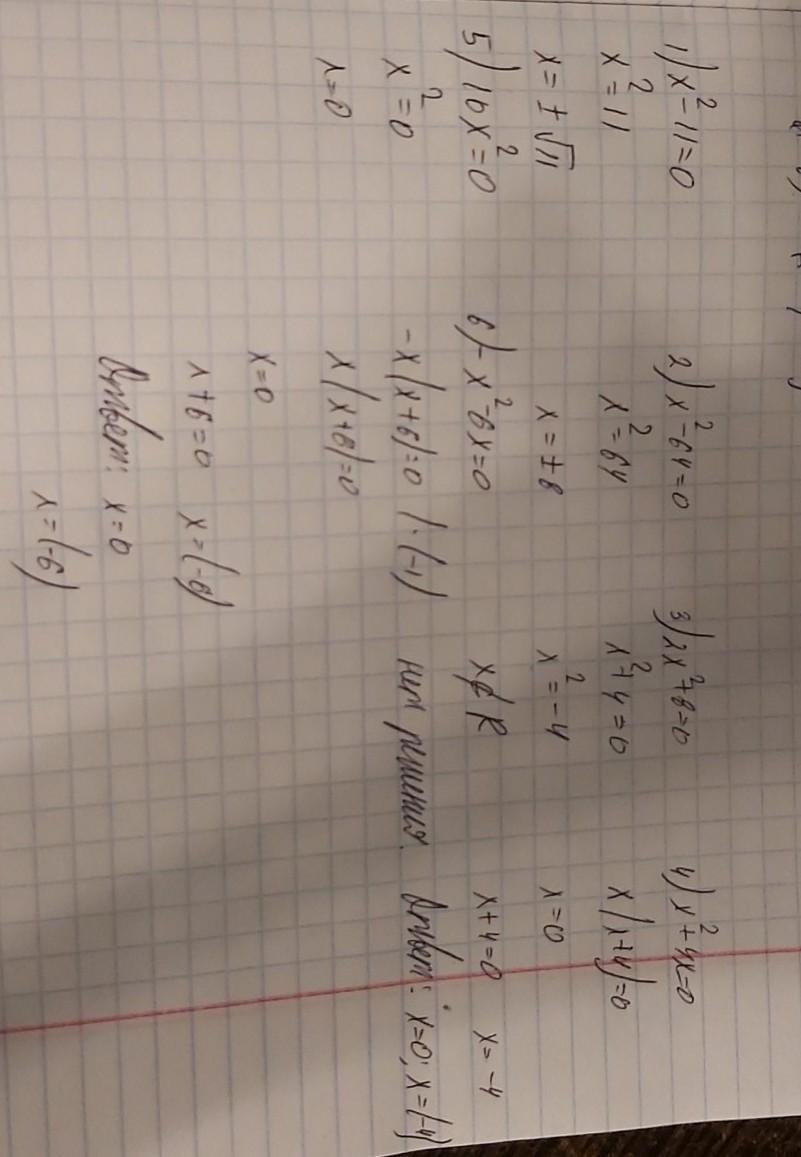 1) x² - 11 = 0
x² = 11
x = ± √11
2) x² - 64 = 0
x² = 64
x = ± 8
3) 2x² + 8 = 0
x² + 4 = 0
x² = -4
x ∉ R
нет решения.
4) x² + 4x = 0
x(x+4) = 0
x = 0
x + 4 = 0 x = -4
Ответ: x = 0; x = (-4)
5) 16x² = 0
x² = 0
x = 0
6) - x² - 6x = 0
-x(x+6) = 0 | · (-1)
x(x+6) = 0
x = 0
x + 6 = 0 x = (-6)
Ответ: x = 0
x = (-6)